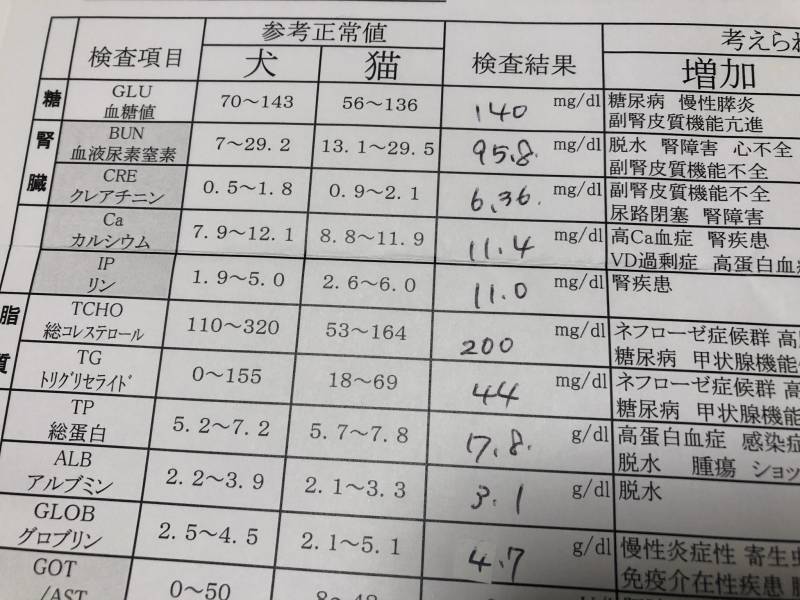 参考正常値
検査項目 犬 猫 検査結果 増加
糖 GLU 血糖値 70～143 56～136 140 mg/dl 糖尿病 慢性膵炎
副腎皮質機能亢進
腎臓 BUN 血液尿素窒素 7～29.2 13.1～29.5 95.8 mg/dl 脱水 腎障害 心不全
副腎皮質機能不全
CRE クレアチニン 0.5～1.8 0.9～2.1 6.36 mg/dl 副腎皮質機能不全
尿路閉塞 腎障害
Ca カルシウム 7.9～12.1 8.8～11.9 11.4 mg/dl 高Ca血症 腎疾患
VD過剰症 高蛋白血
IP リン 1.9～5.0 2.6～6.0 11.0 mg/dl 腎疾患
脂質 TCHO 総コレステロール 110～320 53～164 200 mg/dl ネフローゼ症候群
糖尿病 甲状腺機能
TG トリグリセライド 0～155 18～69 44 mg/dl ネフローゼ症候群
糖尿病 甲状腺機能
TP 総蛋白 5.2～7.2 5.7～7.8 7.8 g/dl 高蛋白血症 感染症
脱水 腫瘍 ショッ
ALB アルブミン 2.2～3.9 2.1～3.3 3.1 g/dl 脱水
GLOB グロブリン 2.5～4.5 2.1～5.1 4.7 g/dl 慢性炎症性 寄生虫
免疫介在性疾患
GOT /AST 0～50